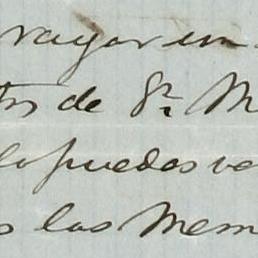 rayar en
tos de Sr. M
lo puedas ve
s las Mem